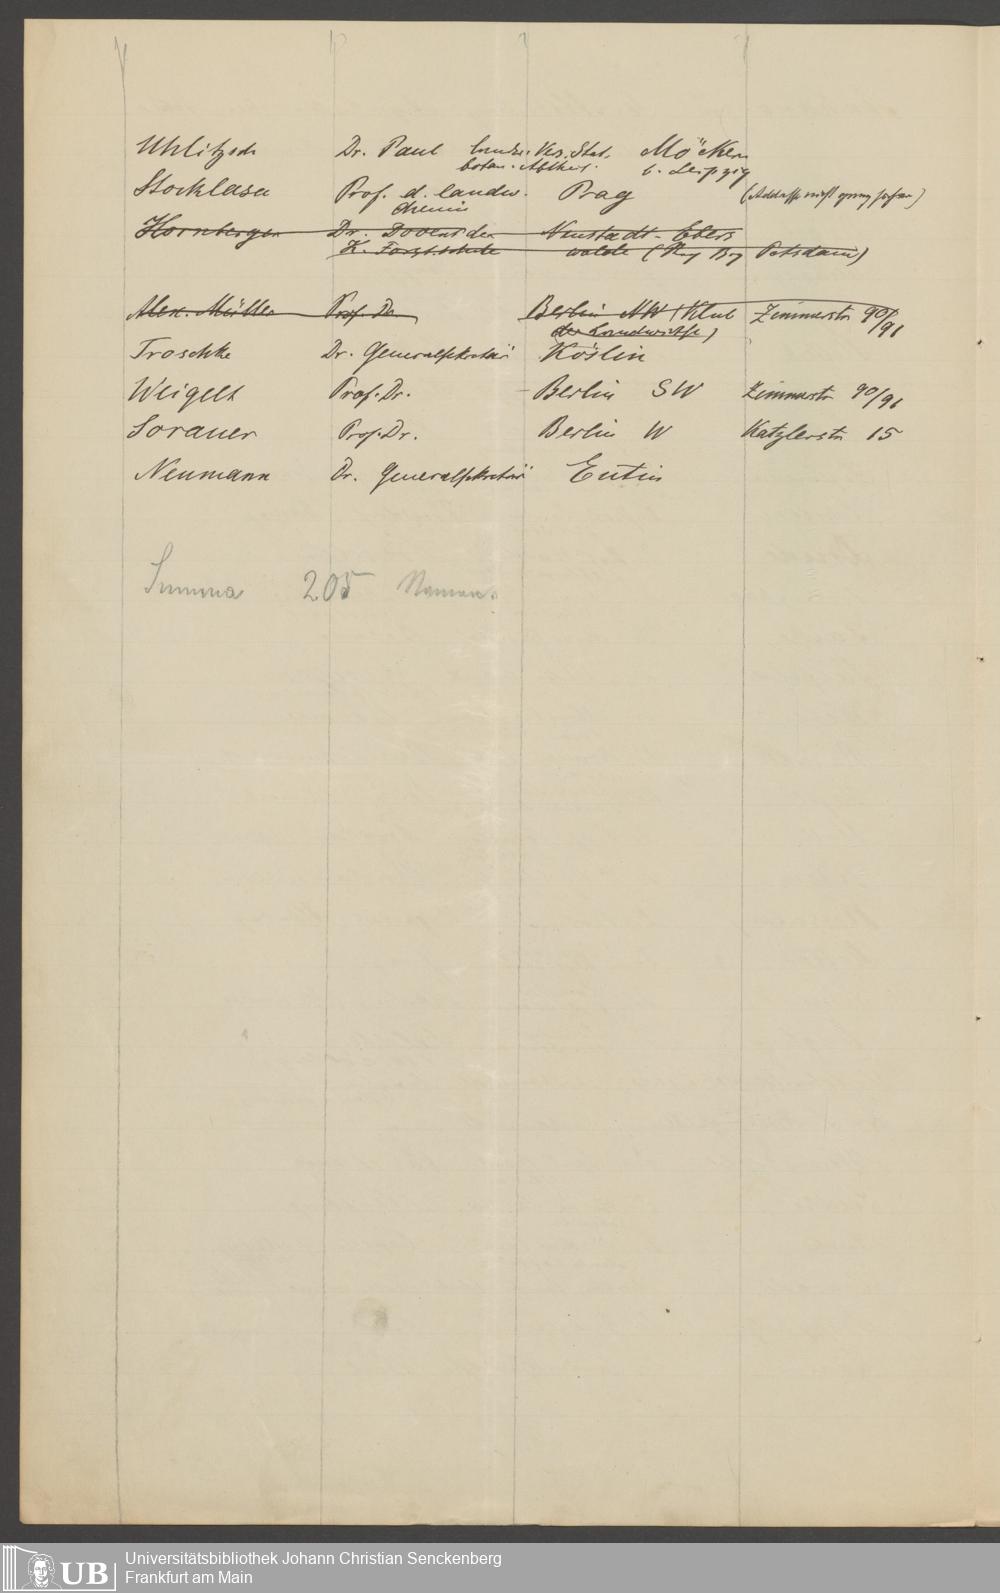 Uhlitzsch Dr. Paul landw. Ves. Stat. Möckern
botan. Abtheil. b. Leipzig
Stocklasa Prof. d. landw. Prag (Addresse nicht genug sicher)
Chemie
Hornberger Dr. Docent der Neustadt-Ebers
K. Forstschule walde (Reg Bez Potsdam)
Alex. Müller Prof. Dr. Berlin NW (Klub Zimmerstr 90/91
der Landwirthe)
Troschke Dr. Generalsekretär Köslin
Weigelt Prof. Dr. Berlin SW Zimmerstr 90/91
Sorauer Prof. Dr. Berlin W Katzlerstr 15
Neumann Dr. Generalsekretär Eutin
Summa 205 Namen.
UB Universitätsbibliothek Johann Christian Senckenberg
Frankfurt am Main